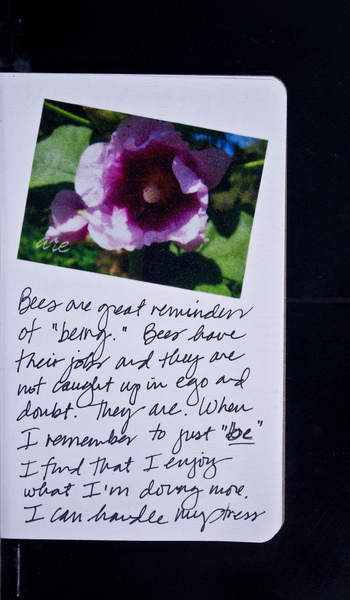 are
Bees are great reminders
of "being." Bees have
their jobs and they are
not caught up in ego and
doubt. They are. When
I remember to just "be"
I find that I enjoy
what I'm doing more.
I can handle my stress